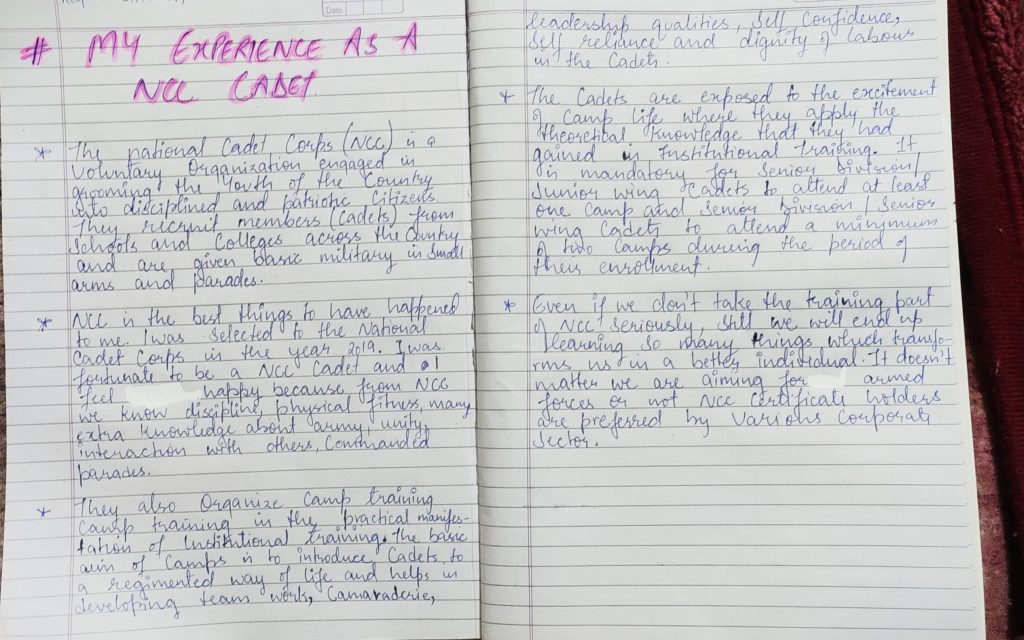 Date
# MY EXPERIENCE AS A
NCC CADET
* The national Cadet Corps (NCC) is a
Voluntary Organization engaged in
grooming the Youth of the Country
into disciplined and patriotic Citizens.
They recruit members (Cadets) from
Schools and Colleges across the Country
and are given basic military in Small
arms and parades.
* NCC is the best things to have happened
to me. I was Selected to the National
Cadet Corps in the year 2019. I was
fortunate to be a NCC Cadet and I
feel happy because from NCC
we know discipline, physical fitness, many
extra knowledge about army, unity,
interaction with others, Commanded
parades.
* They also Organize Camp training
Camp training is the practical manifes-
tation of Institutional training. The basic
aim of Camps is to introduce Cadets to
a regimented way of life and helps in
developing team work, Camaraderie,
leadership qualities, Self Confidence,
Self reliance and dignity of labour
in the Cadets.
* The Cadets are exposed to the excitement
of Camp life where they apply the
theoretical knowledge that they had
gained in Institutional Training. It
is mandatory for Senior Division/
Junior wing Cadets to attend at least
one Camp and Senior Division/Senior
wing Cadets to attend a minimum
of two Camps during the period of
their enrollment.
* Even if we don't take the training part
of NCC Seriously, Still we will end up
learning so many things which transfo-
rms us in a better individual. It doesn't
matter we are aiming for armed
forces or not NCC Certificate holders
are preferred by Various Corporate
Sector.